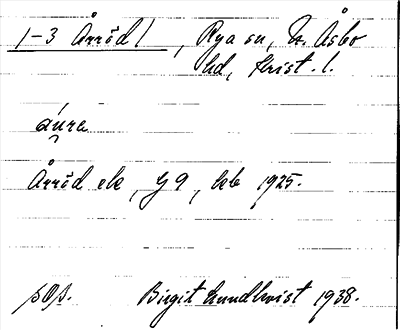 1-3 Årröd /, Rya sn, N. Åsbo
hd, Krist. l.
áu̯ra
Årröd ek, G 9, lab 1925.
Birgit Lundkvist 1938.